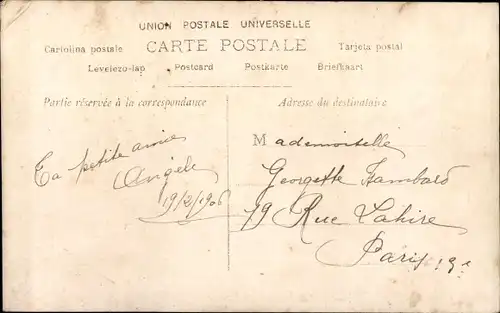 UNION POSTALE UNIVERSELLE
Cartolina postale CARTE POSTALE Tarjeta postal
Levelezo-lap Postcard Postkarte Briefkaart
Partie réservée à la correspondance
Adresse du destinataire
Ta petite amie
Angèle
19/2/1906
Mademoiselle
Georgette Hambard
79 Rue Lahire
Paris 13e